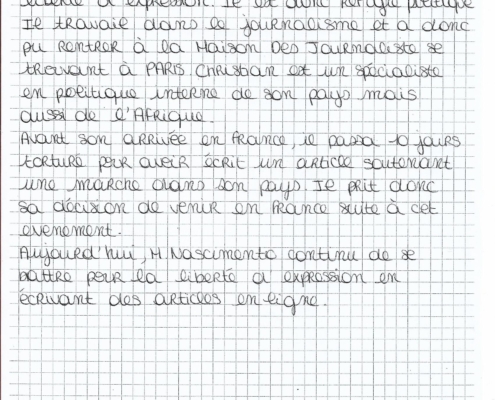 d'expression. Il est donc Réfugié politique
Il travaie dans le journalisme et a donc
pu Rentrer à la Maison Des Journaliste se
trouvant à PARIS. Christian est un spécialiste
en politique interne de son pays mais
aussi de l'Afrique.
Avant son arrivée en france, il passa 10 jours
torturé pour avoir écrit un article soutenant
une marche dans son pays. Il prit donc
sa décision de venir en france suite à cet
evenement.
Aujourd'hui, M. Nascimento continu de se
battre pour la liberté d'expression en
écrivant des articles en ligne.